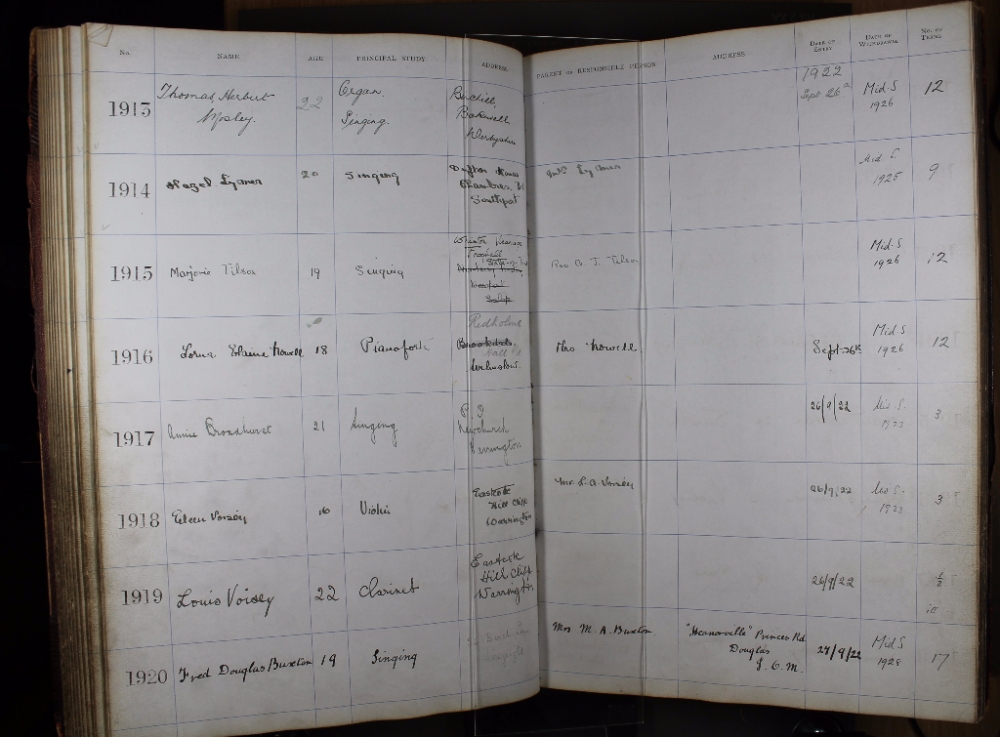 No. NAME AGE PRINCIPAL STUDY ADDRESS PARENT OR RESPONSIBLE PERSON ADDRESS DATE OF ENTRY DATE OF WITHDRAWAL No. OF TERMS
1913 Thomas Herbert Mosley. 22 Organ. Singing. Bakewell Derbyshire 1922 Sept 26th Mid-S 1926 12
1914 Hazel Lymer 20 Singing Southport Mrs Lymer Mid S 1925 9
1915 Marjorie Tilson 19 Singing Rev G. J. Tilson Mid-S 1926 12
1916 Lorna Elaine Nowell 18 Pianoforte Redholme Mrs Nowell Sept. 26th Mid S 1926 12
1917 Annie Broadhurst 21 Singing Newchurch Warrington 26/9/22 Mid-S. 1923 3
1918 Eileen Voisey 16 Violin Eastcote Hill Cliffe Warrington Mr. L. A. Voisey 26/9/22 Mid S. 1923 3
1919 Louis Voisey 22 Clarinet Eastcote Hill Cliffe Warrington 26/9/22
1920 Fred Douglas Buxton 19 Singing Mrs M. A. Buxton Princes Rd. Douglas I. O. M. 27/9/22 Mid S 1928 17